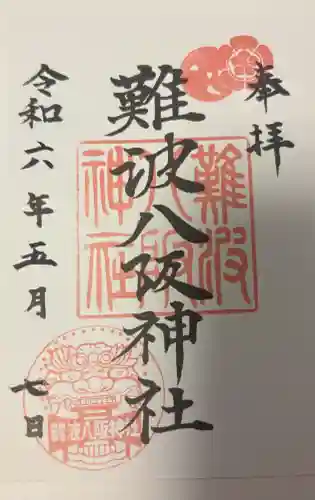 奉拝
難波八阪神社
令和六年五月七日
難波
八阪
神社
難波八阪神社